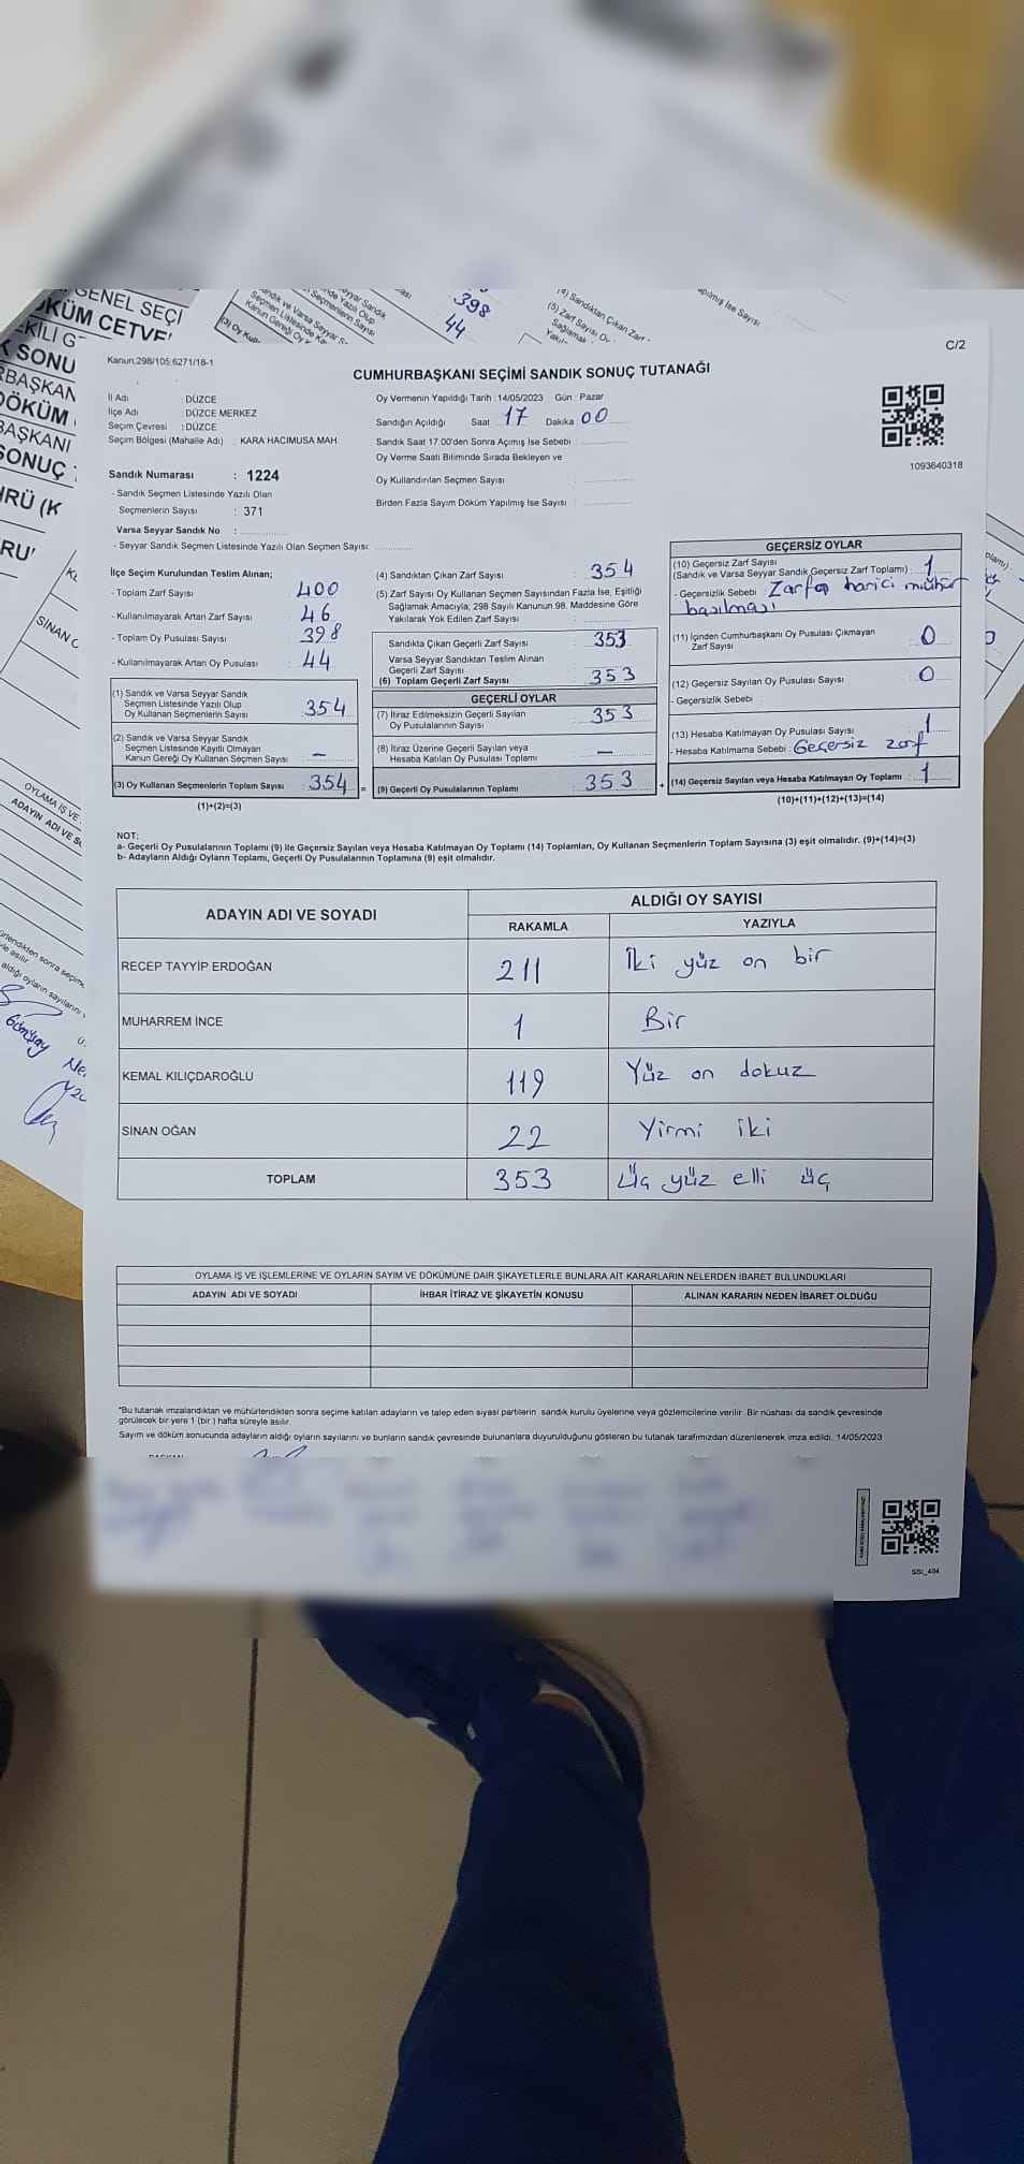 GENEL SEÇİ
KÜM CETVE
SONU
BAŞKAN
DÖKÜM
BAŞKANI
SONUÇ
SİNAN
398
44
(4) Sandıktan Çıkan Zarf
OYLAMA İŞ VE
ADAYIN ADI VE
C/2
Kanun:298/105;6271/18-1
CUMHURBAŞKANI SEÇİMİ SANDIK SONUÇ TUTANAĞI
İl Adı : DÜZCE
İlçe Adı : DÜZCE MERKEZ
Seçim Çevresi : DÜZCE
Seçim Bölgesi (Mahalle Adı) : KARA HACIMUSA MAH.
Sandık Numarası : 1224
- Sandık Seçmen Listesinde Yazılı Olan
Seçmenlerin Sayısı : 371
Varsa Seyyar Sandık No :
- Seyyar Sandık Seçmen Listesinde Yazılı Olan Seçmen Sayısı:
Oy Vermenin Yapıldığı Tarih : 14/05/2023 Gün : Pazar
Sandığın Açıldığı Saat 17 Dakika 00
Sandık Saat 17.00'den Sonra Açılmış İse Sebebi :
Oy Verme Saati Bitiminde Sırada Bekleyen ve
Oy Kullandırılan Seçmen Sayısı :
Birden Fazla Sayım Döküm Yapılmış İse Sayısı :
1093640318
İlçe Seçim Kurulundan Teslim Alınan;
- Toplam Zarf Sayısı : 400
- Kullanılmayarak Artan Zarf Sayısı : 46
- Toplam Oy Pusulası Sayısı : 398
- Kullanılmayarak Artan Oy Pusulası : 44
(1) Sandık ve Varsa Seyyar Sandık
Seçmen Listesinde Yazılı Olup
Oy Kullanan Seçmenlerin Sayısı : 354
(2) Sandık ve Varsa Seyyar Sandık
Seçmen Listesinde Kayıtlı Olmayan
Kanun Gereği Oy Kullanan Seçmen Sayısı : —
(3) Oy Kullanan Seçmenlerin Toplam Sayısı : 354 =
(1)+(2)=(3)
(4) Sandıktan Çıkan Zarf Sayısı : 354
(5) Zarf Sayısı Oy Kullanan Seçmen Sayısından Fazla İse, Eşitliği
Sağlamak Amacıyla, 298 Sayılı Kanunun 98. Maddesine Göre
Yakılarak Yok Edilen Zarf Sayısı :
Sandıkta Çıkan Geçerli Zarf Sayısı : 353
Varsa Seyyar Sandıktan Teslim Alınan
Geçerli Zarf Sayısı
(6) Toplam Geçerli Zarf Sayısı : 353
GEÇERLİ OYLAR
(7) İtiraz Edilmeksizin Geçerli Sayılan
Oy Pusulalarının Sayısı : 353
(8) İtiraz Üzerine Geçerli Sayılan veya
Hesaba Katılan Oy Pusulası Toplamı : —
(9) Geçerli Oy Pusulalarının Toplamı : 353 +
GEÇERSİZ OYLAR
(10) Geçersiz Zarf Sayısı
(Sandık ve Varsa Seyyar Sandık Geçersiz Zarf Toplamı) : 1
- Geçersizlik Sebebi : Zarfa harici mühür
basılması
(11) İçinden Cumhurbaşkanı Oy Pusulası Çıkmayan
Zarf Sayısı : 0
(12) Geçersiz Sayılan Oy Pusulası Sayısı : 0
- Geçersizlik Sebebi
(13) Hesaba Katılmayan Oy Pusulası Sayısı : 1
- Hesaba Katılmama Sebebi : Geçersiz zarf
(14) Geçersiz Sayılan veya Hesaba Katılmayan Oy Toplamı : 1
(10)+(11)+(12)+(13)=(14)
NOT:
a- Geçerli Oy Pusulalarının Toplamı (9) ile Geçersiz Sayılan veya Hesaba Katılmayan Oy Toplamı (14) Toplamları, Oy Kullanan Seçmenlerin Toplam Sayısına (3) eşit olmalıdır. (9)+(14)=(3)
b- Adayların Aldığı Oyların Toplamı, Geçerli Oy Pusulalarının Toplamına (9) eşit olmalıdır.
ADAYIN ADI VE SOYADI ALDIĞI OY SAYISI
RAKAMLA YAZIYLA
RECEP TAYYİP ERDOĞAN 211 İki yüz on bir
MUHARREM İNCE 1 Bir
KEMAL KILIÇDAROĞLU 119 Yüz on dokuz
SİNAN OĞAN 22 Yirmi iki
TOPLAM 353 Üç yüz elli üç
OYLAMA İŞ VE İŞLEMLERİNE VE OYLARIN SAYIM VE DÖKÜMÜNE DAİR ŞİKAYETLERLE BUNLARA AİT KARARLARIN NELERDEN İBARET BULUNDUKLARI
ADAYIN ADI VE SOYADI İHBAR İTİRAZ VE ŞİKAYETİN KONUSU ALINAN KARARIN NEDEN İBARET OLDUĞU
*Bu tutanak imzalandıktan ve mühürlendikten sonra seçime katılan adayların ve talep eden siyasi partilerin sandık kurulu üyelerine veya gözlemcilerine verilir. Bir nüshası da sandık çevresinde
görülecek bir yere 1 (bir) hafta süreyle asılır.
Sayım ve döküm sonucunda adayların aldığı oyların sayılarını ve bunların sandık çevresinde bulunanlara duyurulduğunu gösteren bu tutanak tarafımızdan düzenlenerek imza edildi. 14/05/2023